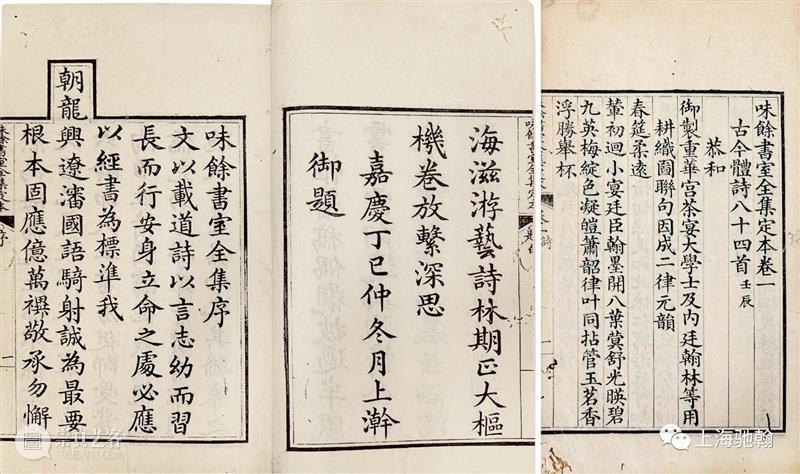 味餘書室全集定本卷一
古今體詩八十四首 壬辰
恭和
御製重華宮茶宴大學士及內廷翰林等用
耕織圖聯句因成二律元韻
春筵柔遠
輦初迴小宴廷臣翰墨開八葉蓂舒光暎碧
九英梅綻色凝皚簫韶律叶同拈管玉茗香
浮勝舉杯
味餘書室全集定本
海滋游藝詩林期正大樞
機卷放繫深思
嘉慶丁巳仲冬月上澣
御題
味餘書室全集序
文以載道詩以言志幼而習
長而行安身立命之處必應
以經書為標準我
朝龍興遼瀋國語騎射誠為最要
根本固應億萬禩敬承勿懈
序
上海驰翰